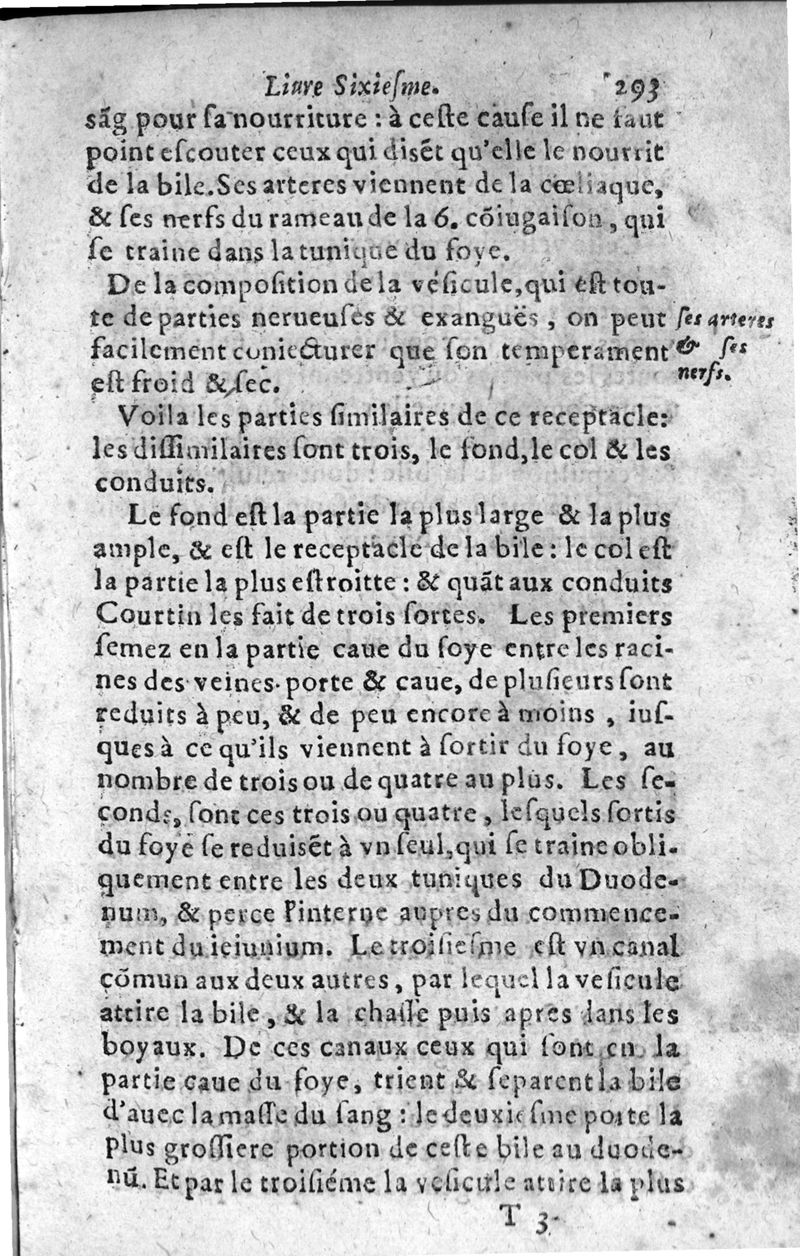 Liure Sixiesme. 293
sãg pour sa nourriture : à ceste cause il ne faut
point escouter ceux qui disẽt qu'elle le nourrit
de la bile. Ses arteres viennent de la cœliaque,
& ses nerfs du rameau de la 6. cõiugaison, qui
se traine dans la tunique du foye.
De la composition de la vésicule, qui est tou-
te de parties nerueuses & exanguës, on peut
facilement coniecturer que son temperament
est froid & sec.
ses arteres
& ses
nerfs.
Voila les parties similaires de ce receptacle:
les dissimilaires sont trois, le fond, le col & les
conduits.
Le fond est la partie la plus large & la plus
ample, & est le receptacle de la bile : le col est
la partie la plus estroitte : & quãt aux conduits
Courtin les fait de trois sortes. Les premiers
semez en la partie caue du foye entre les raci-
nes des veines porte & caue, de plusieurs sont
reduits à peu, & de peu encore à moins, ius-
ques à ce qu'ils viennent à sortir du foye, au
nombre de trois ou de quatre au plus. Les se-
conds, sont ces trois ou quatre, lesquels sortis
du foye se reduisẽt à vn seul, qui se traine obli-
quement entre les deux tuniques du Duode-
num, & perce l'interne aupres du commence-
ment du ieiunium. Le troisiesme est vn canal
cõmun aux deux autres, par lequel la vesicule
attire la bile, & la chasse puis apres dans les
boyaux. De ces canaux ceux qui sont en la
partie caue du foye, trient & separent la bile
d'auec la masse du sang : le deuxiesme porte la
plus grossiere portion de ceste bile au duode-
nũ. Et par le troisiéme la vesicule attire la plus
T 3